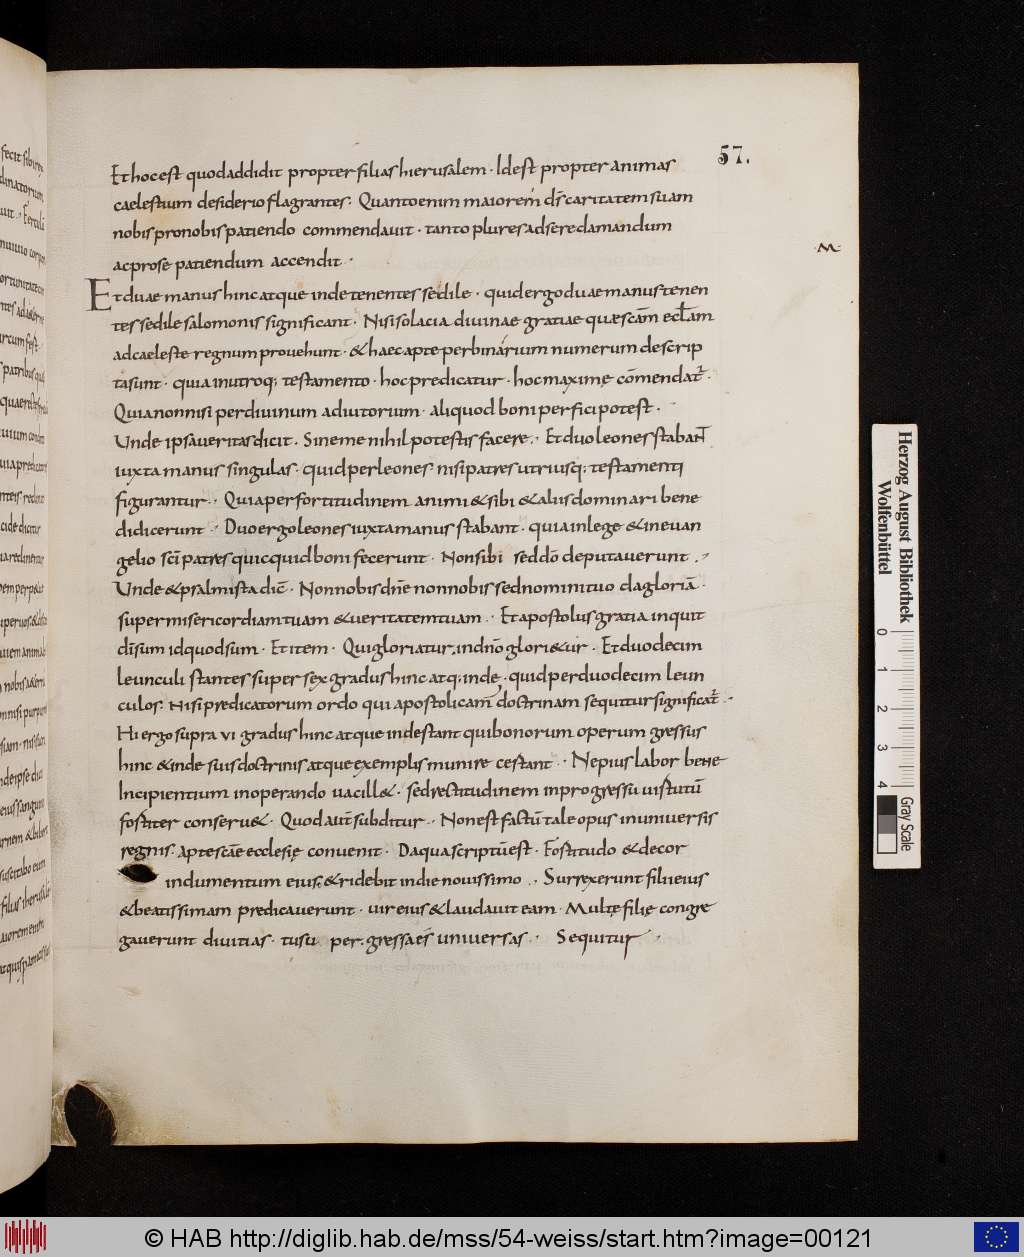 57.
Ethocest quodaddidit propterfilias hierusalem · Idest propter animas
caelestium desiderio flagrantes · Quantoenim maiorem ds̄ caritatem suam
nobis pronobis patiendo commendavit · tanto plures adse redamandum
ac prose patiendum accendit ·
·M·
Et duae manus hinc atque inde tenentes sedile · quid ergo duae manus tenen
tes sedile salomonis significant · Nisi solacia divinae gratiae quae scām eclām
ad caeleste regnum provehunt · & haec apte per binarium numerum descrip
ta sunt · quia in utroq; testamento · hoc predicatur · hoc maxime cōmendat̄ ·
Quia non nisi per divinum adiutorium · aliquod boni perfici potest ·
Unde ipsa veritas dicit · Sine me nihil potestis facere · Et duo leones stabant
iuxta manus singulas · quid per leones nisi patres utriusq; testamenti
figurantur · Quia per fortitudinem animi & sibi & aliis dominari bene
didicerunt · Duo ergo leones iuxta manus stabant · quia in lege & in evan
gelio sc̄i patres quicquid boni fecerunt · Non sibi sed dō deputaverunt ·
Unde & psalmista dic̄ · Non nobis dn̄e non nobis sed nomini tuo da gloriā ·
super misericordiam tuam & veritatem tuam · Et apostolus gratia inquit
dī sum id quod sum · Et item · Qui gloriatur · in dn̄o glori&ur · Et duodecim
leunculi stantes super sex gradus hinc atq; inde · quid per duodecim leun
culos · Nisi predicatorum ordo qui apostolicam doctrinam sequitur significat̄ ·
Hi ergo supra vi gradus hinc atque inde stant qui bonorum operum gressus
hinc & inde suis doctrinis atque exemplis munire certant · Ne pius labor bene
Incipientium in operando vacill& · sed rectitudinem in progressu virtutū
fortiter conserv& · Quod aut̄ subditur · Non est factū tale opus in universis
regnis · Apte scāe ecclesie convenit · Da qua scriptū est · Fortitudo & decor
indumentum eius · & ridebit in die novissimo · Surrexerunt filii eius
& beatissimam predicaverunt · vir eius & laudavit eam · Multe filie congre
gaverunt divitias · tu su per · gressa es universas · Sequitur ·
Herzog August Bibliothek
Wolfenbüttel
0 1 2 3 4
Gray Scale
© HAB http://diglib.hab.de/mss/54-weiss/start.htm?image=00121